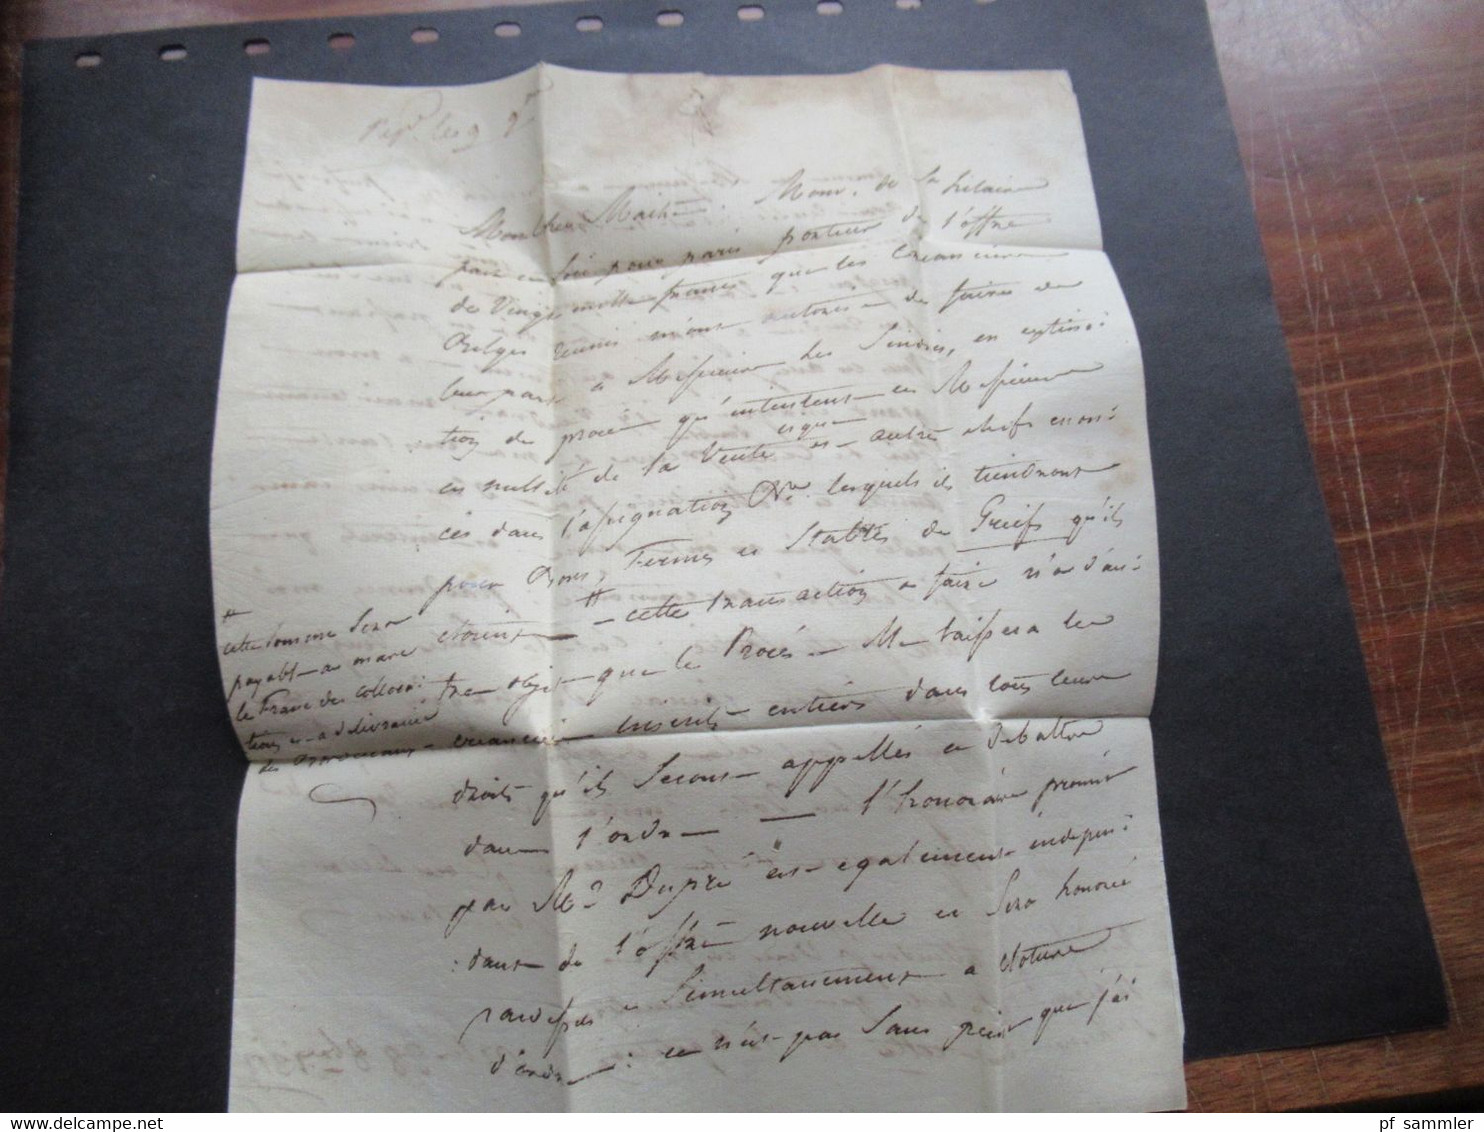 Rep.du le 9 9bre
Mon cher Maître. Mons. de St hilaire
part ce Soir pour paris porteur de l'offre
de Vingt mille francs que les créanciers
Belges réunis m'ont autorisé de faire de
leur part à Messieurs les Sindics, en extinc:
tion du procès qu'intentent ces Messieurs
en nullité de la Vente et autres chefs énon:
cés dans l'assignation, lesquels ils tiendront
pour Bons, Fermes et Stables du Griefs qu'ils
étoient cette transaction à faire n'a d'au:
tre objet que le Procès Me laissera les
créanciers inscrits entiers dans tous leurs
droits qu'ils Seront appellés à débattre
dans l'ordre — l'honoraire promis
par Me Dupré est également indépen:
:dant de l'offre nouvelle et Sera honoré
Simultanement a cloture
d'ordre: ce n'est pas Sans peine que j'ai
cette Somme Sera
payable au marc
le Franc des colloca:
tions et a délivrance
des Bordereaux
pf sammler